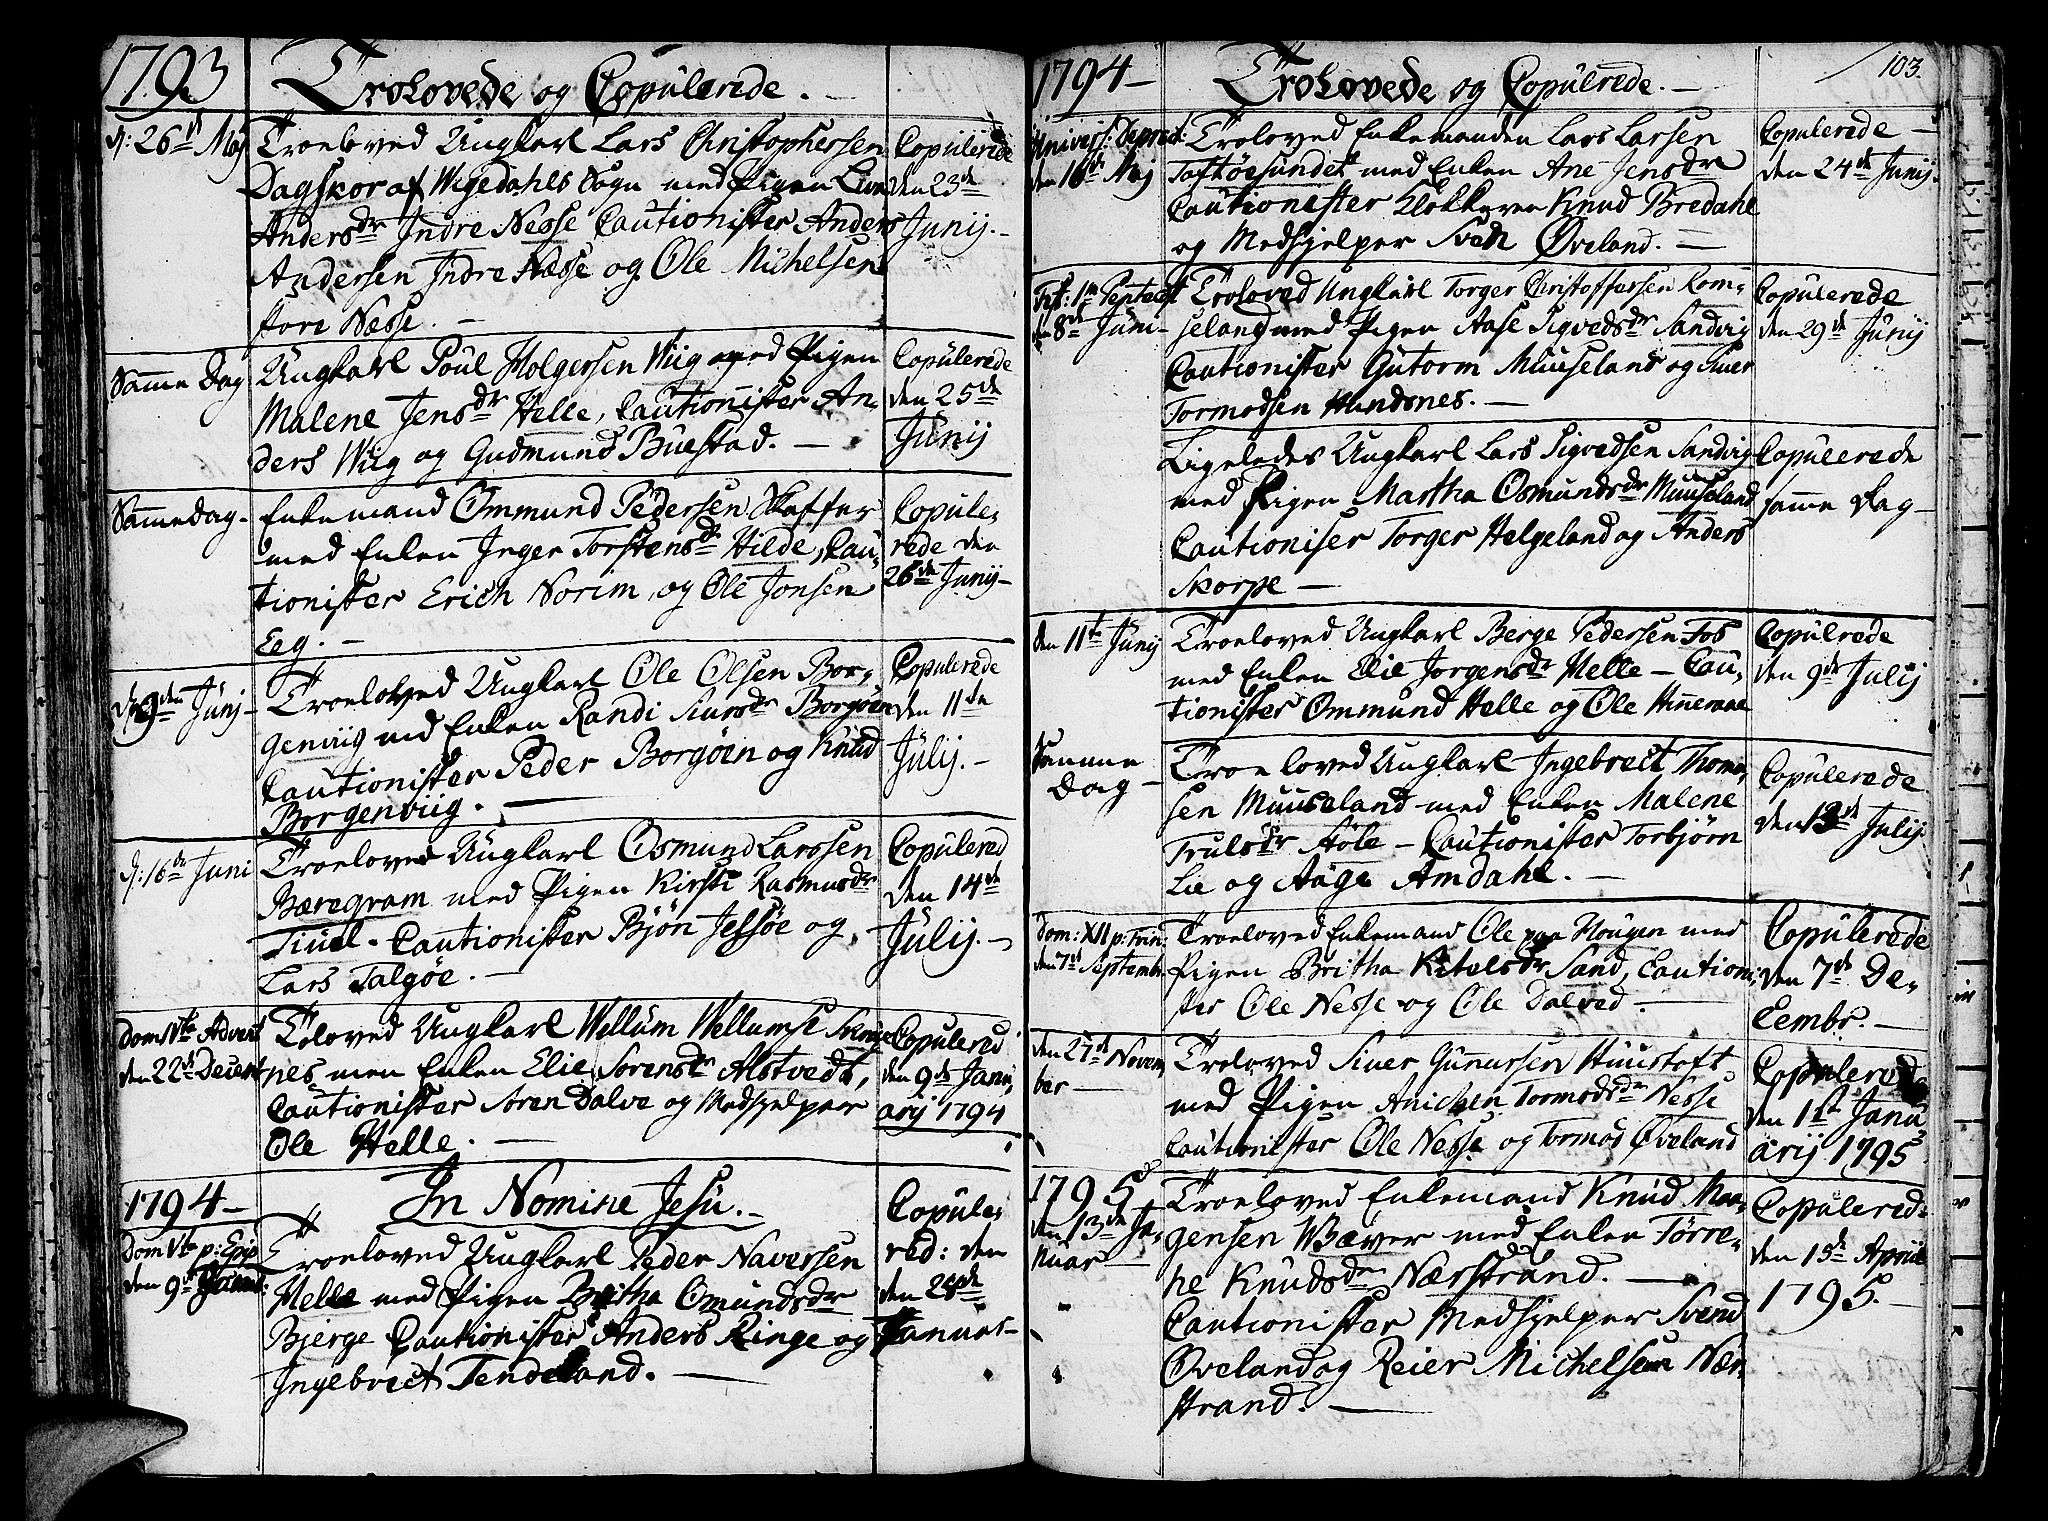 1793
Troelovede og Copulerede.
d: 26de Maj
Troeloved Ungkarl Lars Christophersen
Dagskor af Wigedahls Sogn med Pigen
Andersdr Indre Nesse Cautionister Anders
Andersen Indre Nesse og Ole Michelsen
store Nesse. —
Copulerede
den 25de
Junij. —
Samme Dag
Ungkarl Poul Holgersen Wiig med Pigen
Malene Jensdr Helle, Cautionister An-
ders Wiig og Gudmund Buestad. —
Copulerede
den 25de
Junij
Samme dag-
Enkemand Ommund Pedersen
med Enken Inger Torstensdr Hilde, Cau-
tionister Erich Norim, og Ole Jonsen
Eeg. —
Copule-
rede den
26de Junij-
d: 9den Junij-
Troeloved Ungkarl Ole Olsen Bor-
genviig med Enken Randi Siursdr Borgøen
Cautionister Peder Borgøen og Knud
Borgenviig. —
Copulerede
den 11de
Julij. —
d: 16de Juni
Troeloved Ungkarl Osmund Larssen
Bæregram med Pigen Kirsti Rasmusdr
Cautionister Bjørn Jelsøe og
Lars Talgøe. —
Copulered
den 14de
Julij. —
Dom IVta Advent
den 22de Decembr
Troloved Ungkarl Wellum Wellumse
nes men Enken Elie Sorensdr Alstvedt,
Cautionister Soren Dalve og Medhjelper
Ole Helle. —
Copulered
den 9de Janu-
arij 1794
1794 —
In Nomine Jesu. —
Dom Vta p: Epip
den 9de
Troeloved Ungkarl Peder Naversen
Helle med Pigen Britha Omundsdr
Bjerge Cautionister Anders Ringe og
Ingebrect Tendeland. —
Copule-
red: den
den 28de
Januar-
1794 —
Troelovede og Copulrede. —
103.
Univers: Deprect:
den 16de Maj
Troloved Enkemanden Lars Larsen
Toftøesundet med Enken Ane Jensdr
Cautionister Klokkeren Knud Bredahl
og Medhjelper Sven Øveland. —
Copulerede —
den 24de Junij.
Fest: 1ma Pentecost
den 8de Juni-
Troloved Ungkarl Torger Christoffersen Rom-
seland med Pigen Aase Sigvedsdr Sandvig
Cautionister Gutorm Muuseland og Siver
Tormodsen Hundsnes. —
Copulerede
den 29de Junij
Ligeledes Ungkarl Lars Sigvedsen Sandvig
med Pigen Martha Osmundsdr Muuseland
Cautioniser Torger Helgeland og Anders
Skorpe —
Copulerede
samme Dag —
den 11te Junij
Troeloved Ungkarl Berge Pedersen Fos
med Enken Elie Jorgensdr Helle — Cau-
tionister Ommund Helle og Ole Hinneraae
Copulrede
den 9de Julij
Samme
Dag —
Troeloved Ungkarl Ingebrect Thome-
sen Muuseland med Enken Malene
Trulsdr Støle — Cautionister Torbjørn
Lie og Aage Amdahl. —
Copulerede
den 13de Julij.
Dom: XII p: Trin:
den 7de Septembr
Troeloved Enkemand Ole paa Hougen med
Pigen Britha Kitelsdr Sand, Cautioni-
ster Ole Nesse og Ole Dalved —
Copulerede
den 7de De-
cembr. —
den 27de Novem-
ber —
Troloved Siver Gunnarsen Huustoft
med Pigen Anichen Tormodsdr Nesse
Cautionister Ole Nesse og Tormod Øveland
Copulered
den 1ste Janu-
arij 1795
1795
den 13de Ja-
nuar —
Troeloved Enkemand Knud Mon-
gensen Wæver med Enken Torre-
he Knudsdr Nærstrand. —
Cautionister Medhjelper Svend
Øveland og Reier Michelsen Nær-
strand. —
Copulered-
den 15de April
1795. —